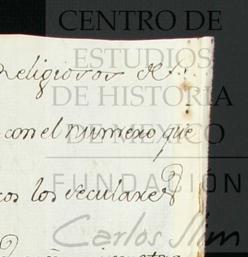 CENTRO DE
ESTUDIOS
Religiosos de
DE HISTORIA
con el numero que
DE MEXICO
FUNDACIÓN
cos los seculares
Carlos Slim